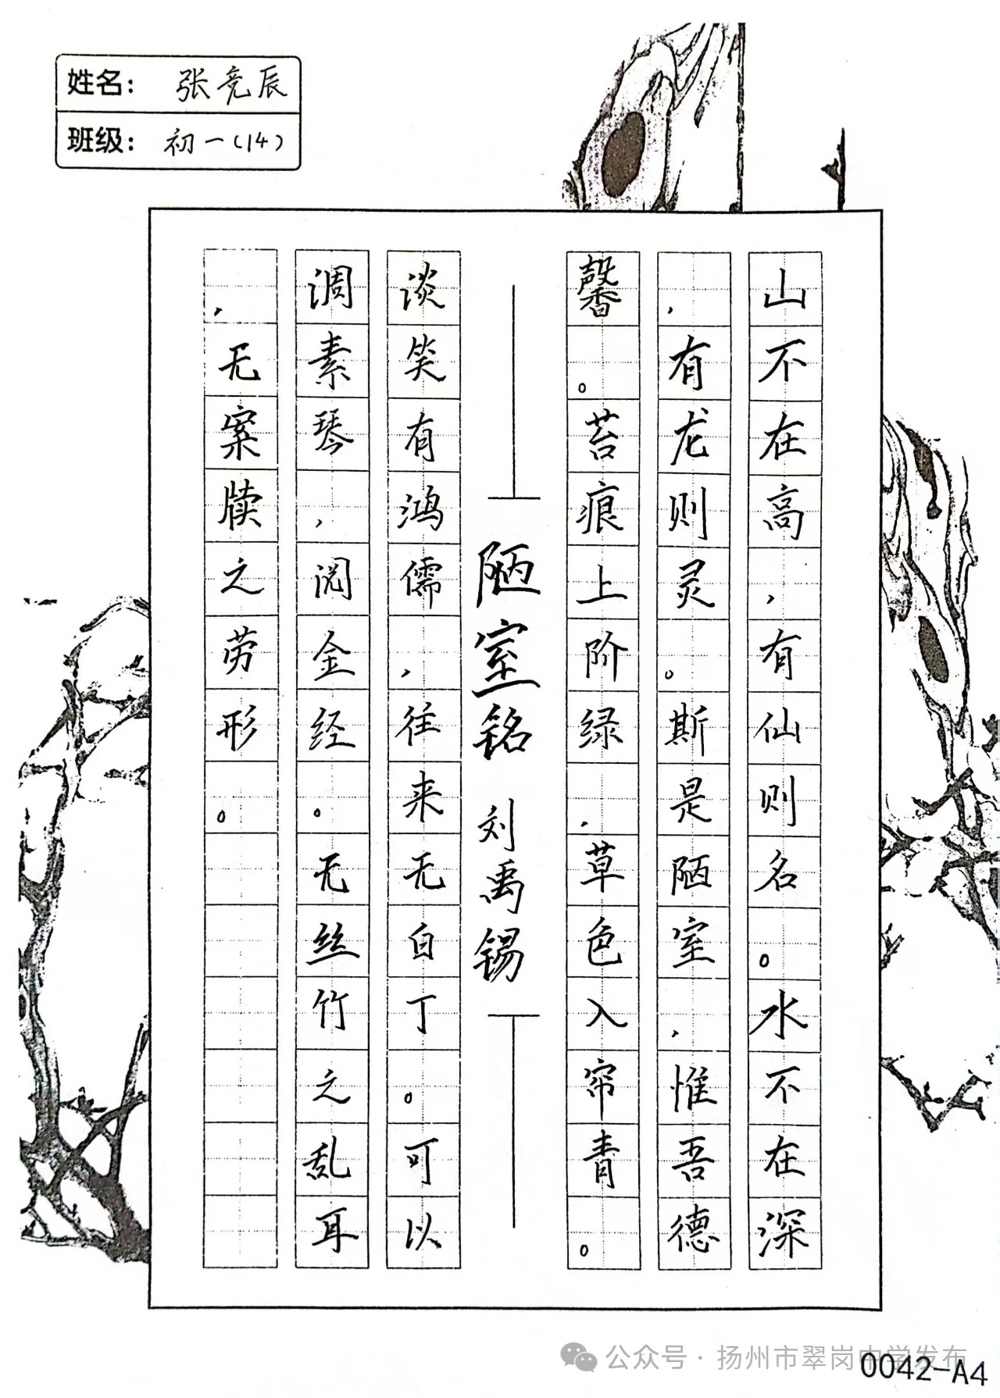 姓名： 张竞辰
班级： 初一(14)
山不在高，有仙则名。水不在深
，有龙则灵。斯是陋室，惟吾德
馨。苔痕上阶绿，草色入帘青。
陋室铭 刘禹锡
谈笑有鸿儒，往来无白丁。可以
调素琴，阅金经。无丝竹之乱耳
，无案牍之劳形。
公众号·扬州市翠岗中学发布
0042-A4